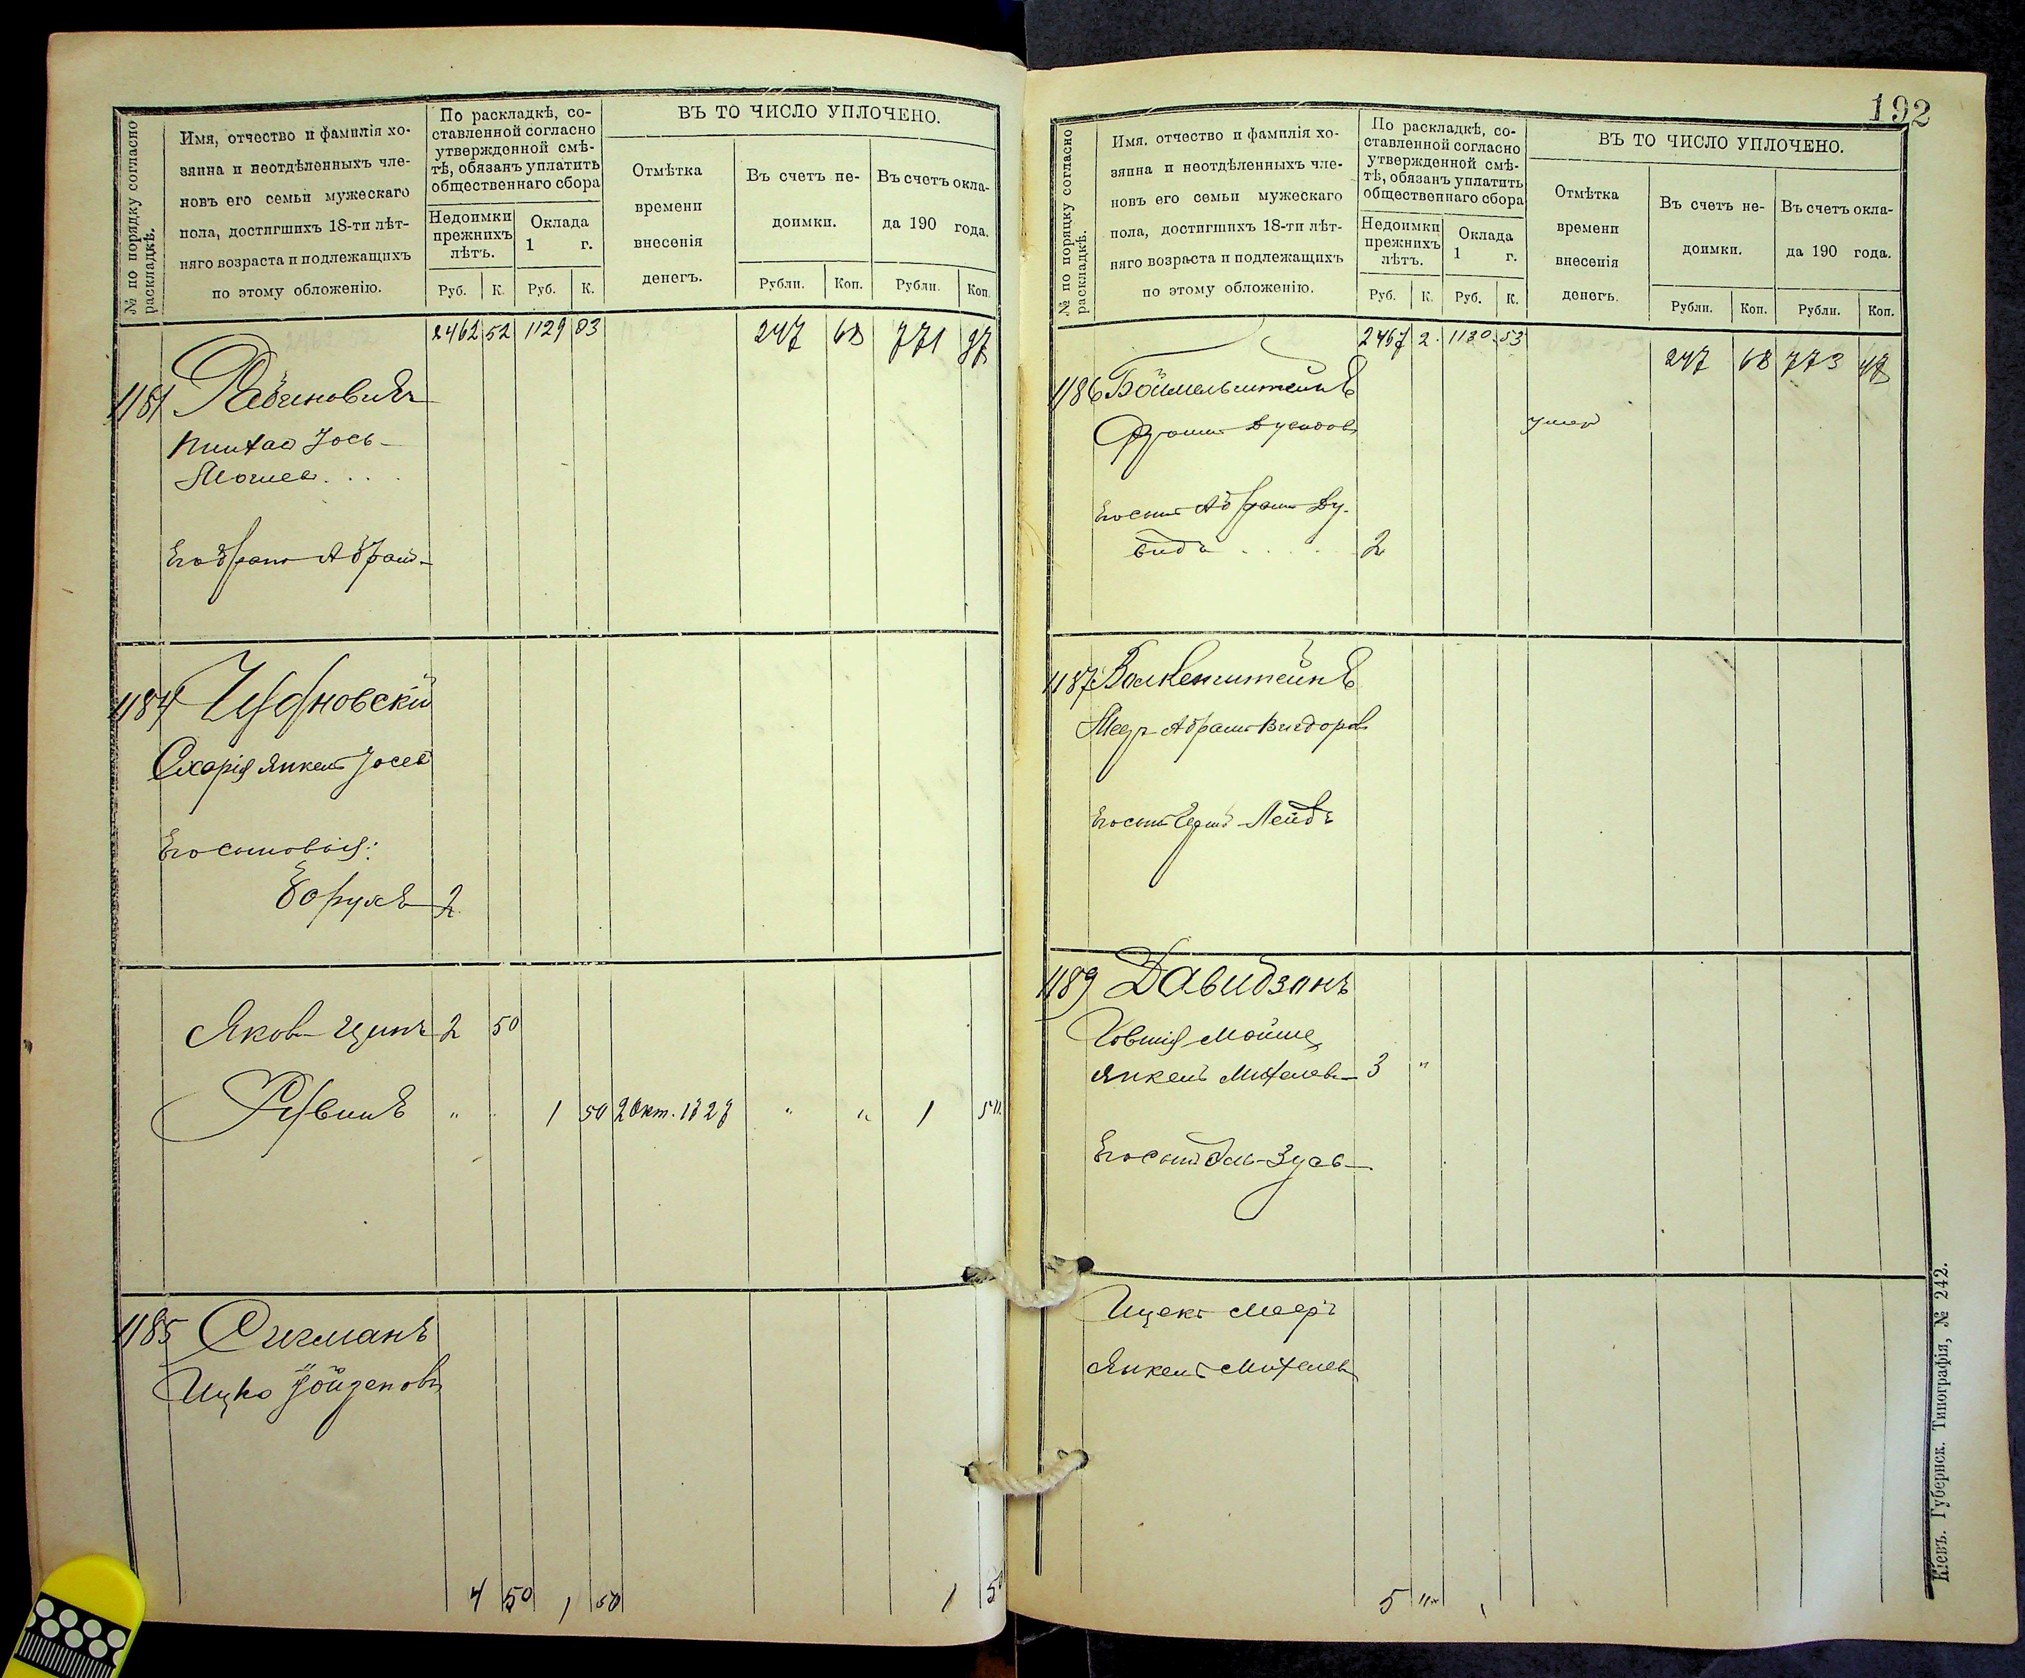 № по порядку согласно раскладкѣ.
Имя, отчество и фамилія хо-
зяина и неотдѣленныхъ чле-
новъ его семьи мужескаго
пола, достигшихъ 18-ти лѣт-
няго возраста и подлежащихъ
по этому обложенію.
По раскладкѣ, со-
ставленной согласно
утвержденной смѣ-
тѣ, обязанъ уплатить
общественнаго сбора
Недоимки
прежнихъ
лѣтъ.
Оклада
1 г.
Руб. К. Руб. К.
ВЪ ТО ЧИСЛО УПЛОЧЕНО.
Отмѣтка
времени
внесенія
денегъ.
Въ счетъ не-
доимки.
Въ счетъ окла-
да 190 года.
Рубли. Коп. Рубли. Коп.
2462 52 1129 03 247 68 771 97
1181 Рабиновичъ
Пинхас Іось-
Мошев....
Его братъ Абрам
1184 Чудновскій
Сахарія Янкель Іосев
Его сыновья:
Борухъ 2
Яков 2 50
Рувинъ " 1 50 2 Окт. " " 1 50
1185 Сигманъ
Ицко
4 50 1 50 1 50
192
№ по порядку согласно раскладкѣ.
Имя, отчество и фамилія хо-
зяина и неотдѣленныхъ чле-
новъ его семьи мужескаго
пола, достигшихъ 18-ти лѣт-
няго возраста и подлежащихъ
по этому обложенію.
По раскладкѣ, со-
ставленной согласно
утвержденной смѣ-
тѣ, обязанъ уплатить
общественнаго сбора
Недоимки
прежнихъ
лѣтъ.
Оклада
1 г.
Руб. К. Руб. К.
ВЪ ТО ЧИСЛО УПЛОЧЕНО.
Отмѣтка
времени
внесенія
денегъ.
Въ счетъ не-
доимки.
Въ счетъ окла-
да 190 года.
Рубли. Коп. Рубли. Коп.
2467 2 1130 53 247 68 773 47
1186 Боймельштейнъ
Дувидов умер
Его сынъ Абрам Ду-
видъ 2
1187 Валкенштейнъ
Меер-Абрам Вигдоров
Его сынъ Лейбъ
1189 Давидзонъ
Ховшія Мойше
Янкель Михелев 3 "
Его сынъ Эль-Зусь
Ицекъ Меер
Янкель Михелев
5 "
Кіевъ. Губернск. Типографія, № 242.